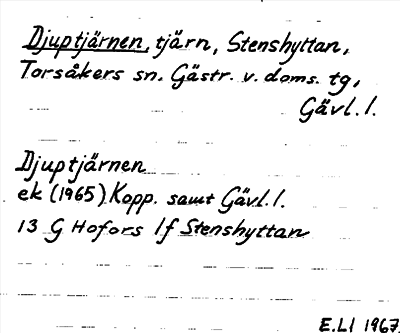 Djuptjärnen, tjärn, Stenshyttan,
Torsåkers sn. Gästr. v. doms. tg,
Gävl. l.
Djuptjärnen
ek (1965) Kopp. samt Gävl. l.
13 G Hofors 1f Stenshyttan
E.Ll 1967.